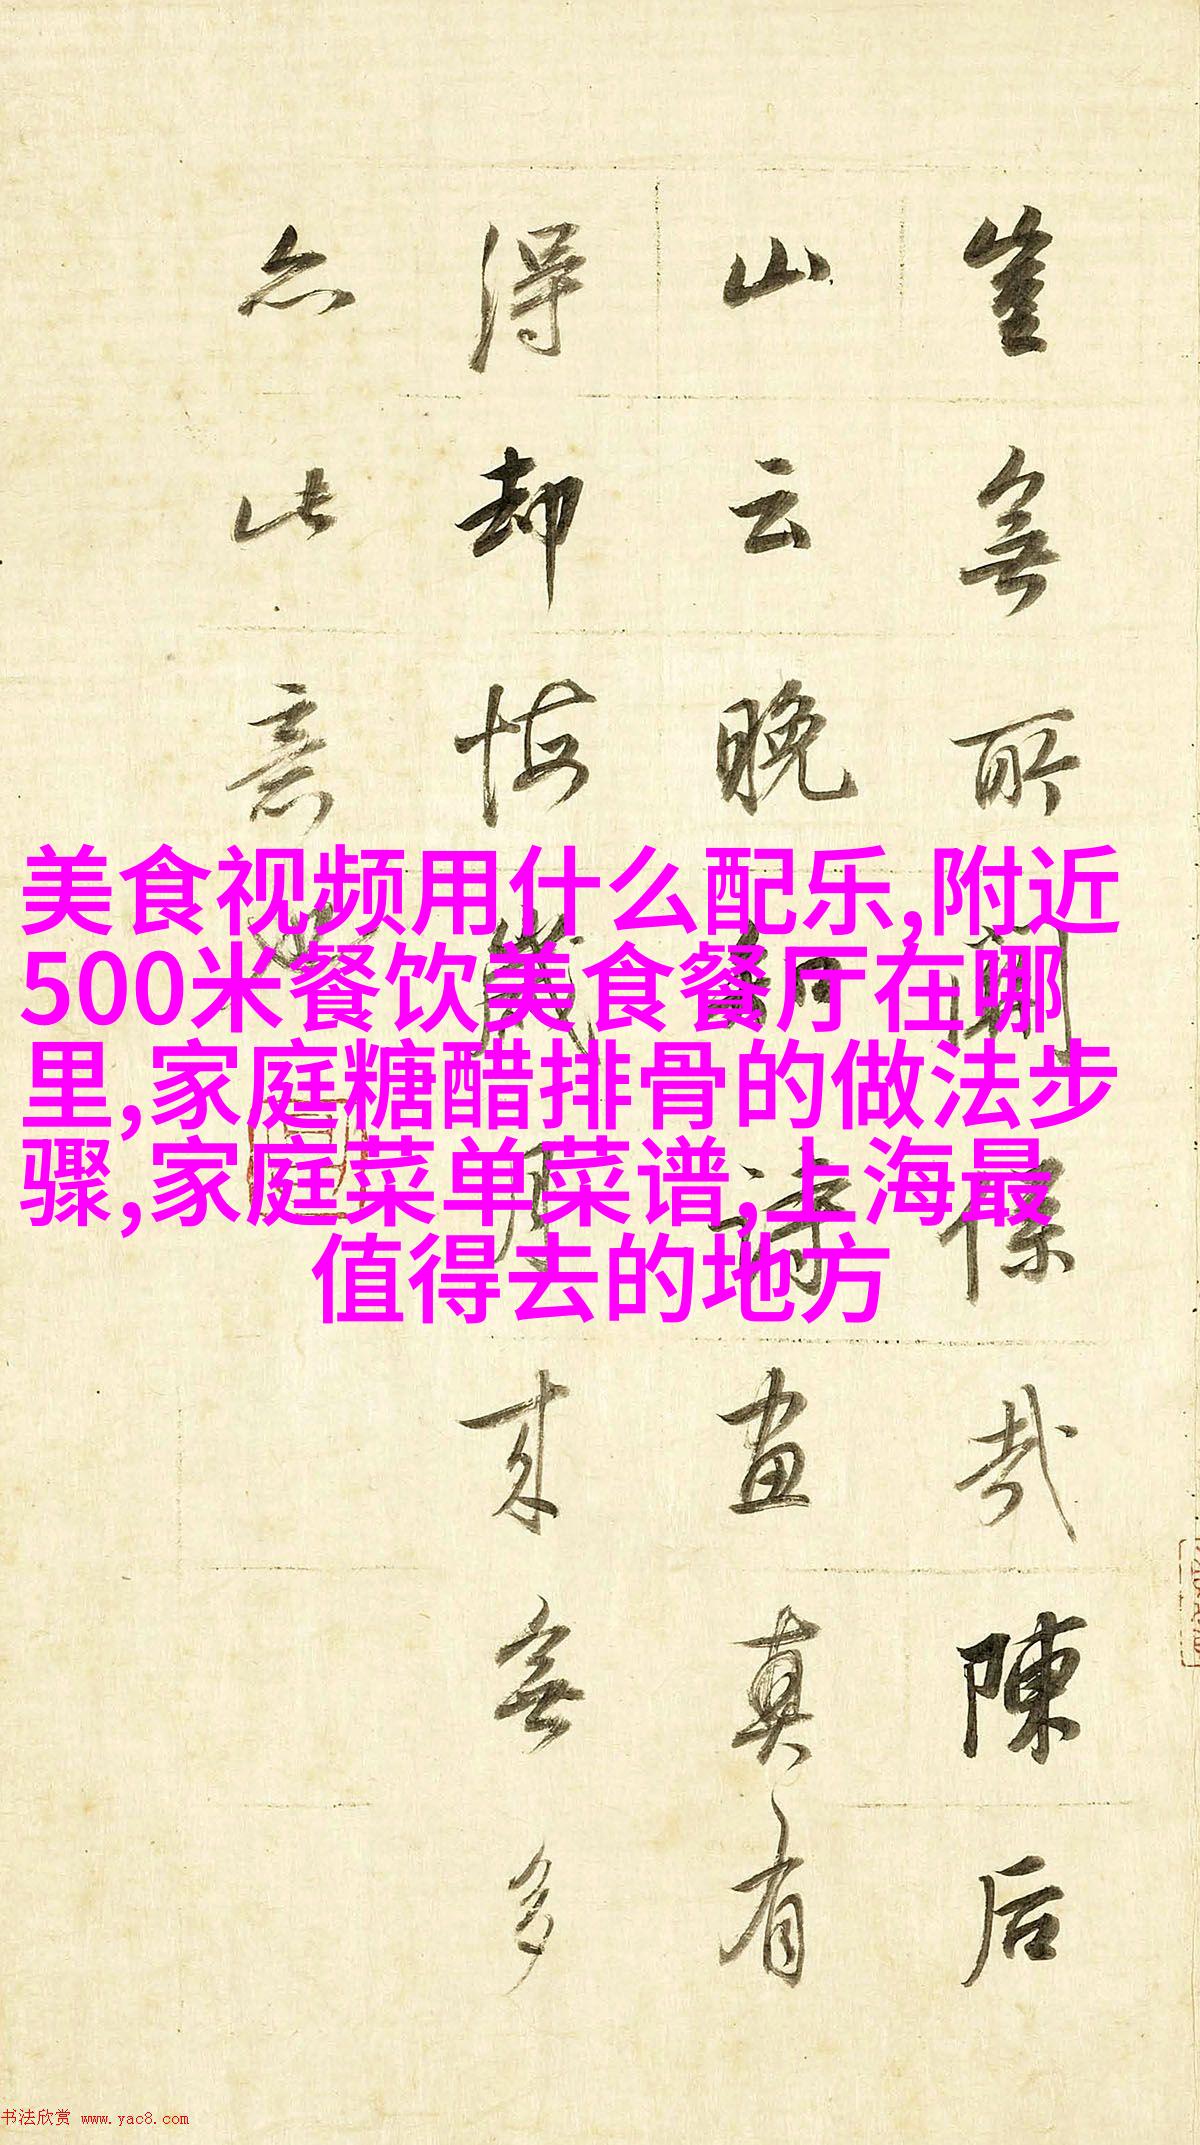 豈無所關係哉陳后
山云晚知詩畫真有
得却悔歲月来無多
亦此意也
美食视频用什么配乐,附近
500米餐饮美食餐厅在哪
里,家庭糖醋排骨的做法步
骤,家庭菜单菜谱,上海最
值得去的地方
书法欣赏 www.yac8.com